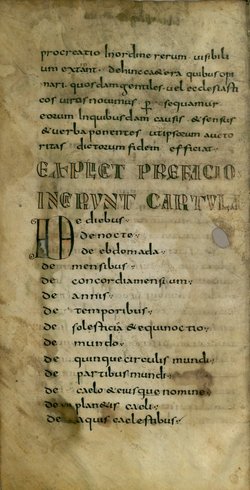 procreatio Inordine rerum visibili
um extant. dehinc caetera quibus opi
nari quosdam gentiles vel ecclesiasti
cos viros novimus sequamur
eorum Inquibusdam causis & sensus
& verba ponentes ut ipsorum aucto
ritas dictorum fidem efficiat
EXPLICT PREFACIO
INCPUNT CARTULA
De diebus
de nocte
de ebdomada
de mensibus
de concordia mensium
de annis
de temporibus
de solesticia & equinoctio
de mundo
de quinque circulis mundi
de partibus mundi
de caelo & eiusque nomine
de planetis caeli
de aquis caelestibus